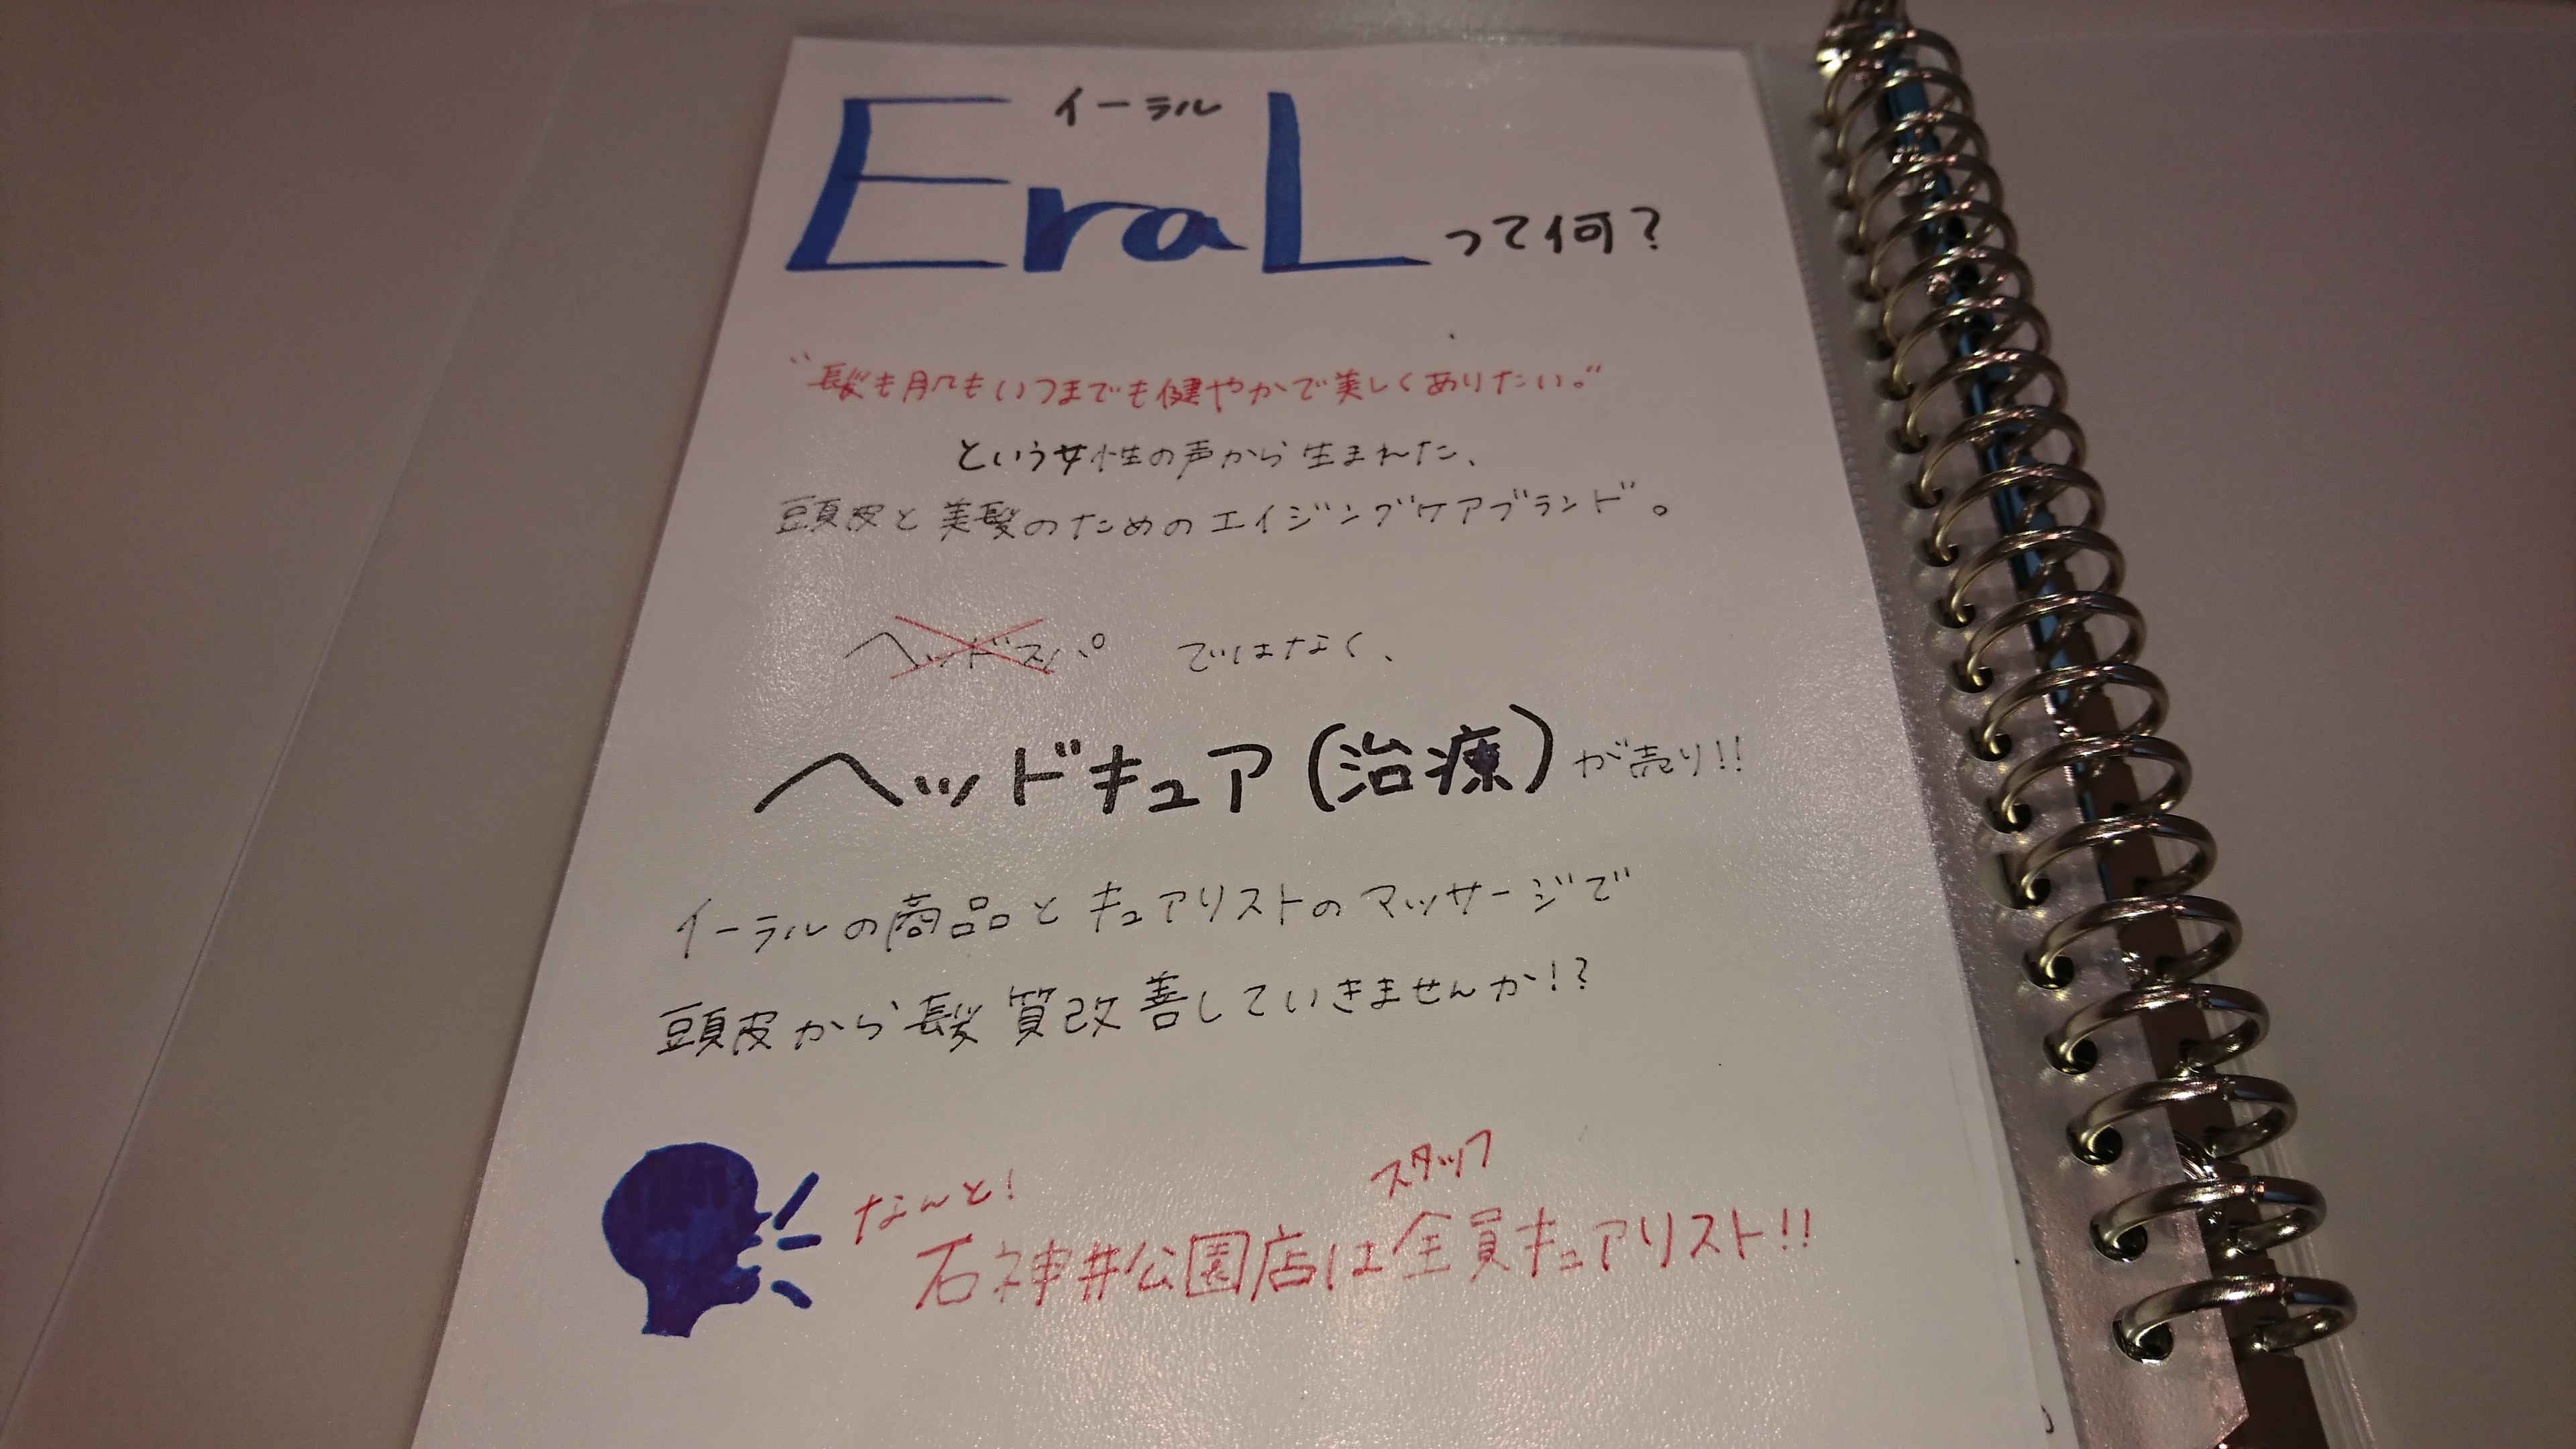 イーラル
EraLって何?
"髪も肌もいつまでも健やかで美しくありたい。"
という女性の声から生まれた、
頭皮と美髪のためのエイジングケアブランド。
ヘッドスパ ではなく、
ヘッドキュア(治療)が売り!!
イーラルの商品とキュアリストのマッサージで
頭皮から髪質改善していきませんか!?
なんと!
スタッフ
石神井公園店は全員キュアリスト!!